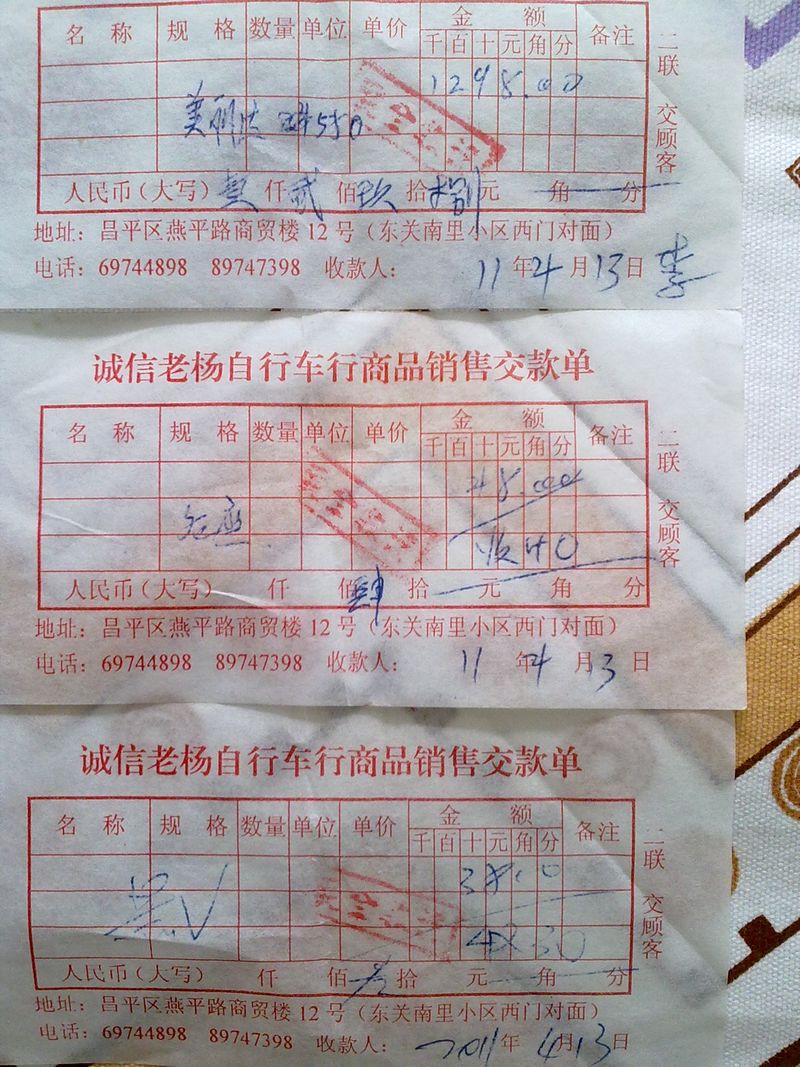 名 称 规 格 数量 单位 单价 金 额 备注
千 百 十 元 角 分
1298.00
美利达 550
人民币（大写） 仟 贰 佰 玖 拾 捌 元 角 分
二联 交顾客
地址：昌平区燕平路商贸楼12号（东关南里小区西门对面）
电话：69744898 89747398 收款人： 11年4月13日 李
诚信老杨自行车行商品销售交款单
名 称 规 格 数量 单位 单价 金 额 备注
千 百 十 元 角 分
48.00
收40
人民币（大写） 仟 佰 肆 拾 元 角 分
二联 交顾客
地址：昌平区燕平路商贸楼12号（东关南里小区西门对面）
电话：69744898 89747398 收款人： 11年4月13日
诚信老杨自行车行商品销售交款单
名 称 规 格 数量 单位 单价 金 额 备注
千 百 十 元 角 分
38.00
收30
人民币（大写） 仟 佰 叁 拾 元 角 分
二联 交顾客
地址：昌平区燕平路商贸楼12号（东关南里小区西门对面）
电话：69744898 89747398 收款人： 2011年4月13日